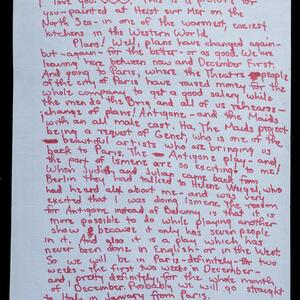 I love you. This is a picture for
you - painted at Heist sur Mer on the
North Sea - in one of the warmest, coziest
kitchens in the Western World.
Plans! Well, plans have changed again -
but - again - for the better - or as good. We are
leaving here between now and December First,
And going to Paris, where the Theatre people
of the city of Paris have raised money for the
whole company to get a good salary while
the men do the Brig and all of us rehearse -
change of plans! Antigone - and the Maids
with an all male cast. Ha, the Maids project
being a request of Genet, who is one of the
beautiful artists who are bringing us
back to Paris. The Antigone play and,
the part of Ismene are so exciting to me!
When Judith and Julian came back from
Berlin they had talked to Helene Weigel, who
had heard about me - and was very
excited that I was doing Ismene. the reason
for Antigone instead of Balcony, is that it is
more possible to do while playing another
show because it only has seven people
in it. And also it is a play which has
never been done in English - or in the West.
So we will be in Paris - definitely - two
weeks - the first two weeks in December -
and pretty definitely for the whole month
of December. Probably we will go straight
to Italy in January from Paris.